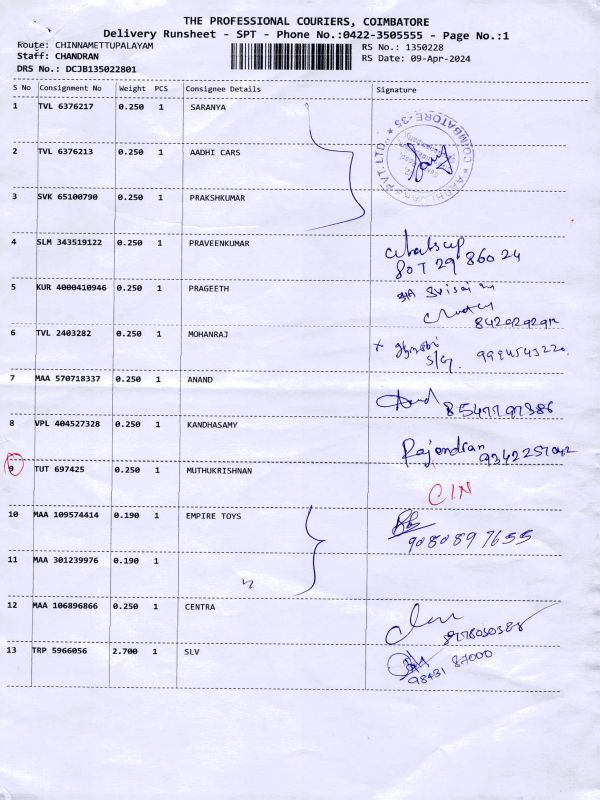 THE PROFESSIONAL COURIERS, COIMBATORE
Delivery Runsheet - SPT - Phone No.:0422-3505555 - Page No.:1
Route: CHINNAMETTUPALAYAM RS No.: 1350228
Staff: CHANDRAN RS Date: 09-Apr-2024
DRS No.: DCJB135022801
S No Consignment No Weight PCS Consignee Details Signature
1 TVL 6376217 0.250 1 SARANYA
COIMBATORE-35
2 TVL 6376213 0.250 1 AADHI CARS
3 SVK 65100790 0.250 1 PRAKSHKUMAR
4 SLM 343519122 0.250 1 PRAVEENKUMAR
5 KUR 4000410946 0.250 1 PRAGEETH
6 TVL 2403282 0.250 1 MOHANRAJ
7 MAA 570718337 0.250 1 ANAND
8 VPL 404527328 0.250 1 KANDHASAMY Rajendran
9 TUT 697425 0.250 1 MUTHUKRISHNAN CIN
10 MAA 109574414 0.190 1 EMPIRE TOYS
9080897655
11 MAA 301239976 0.190 1
12 MAA 106896866 0.250 1 CENTRA
13 TRP 5966056 2.700 1 SLV
98431 87000